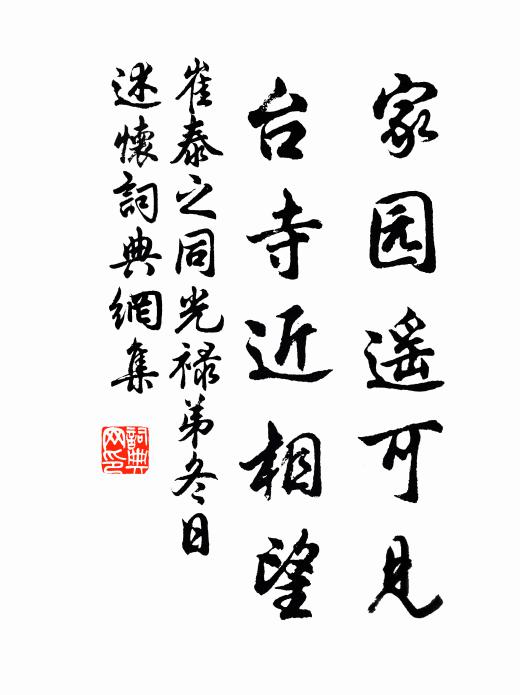 家园遥可见
台寺近相望
崔泰之同光禄弟冬日
述懷詞典網集
詞典网印